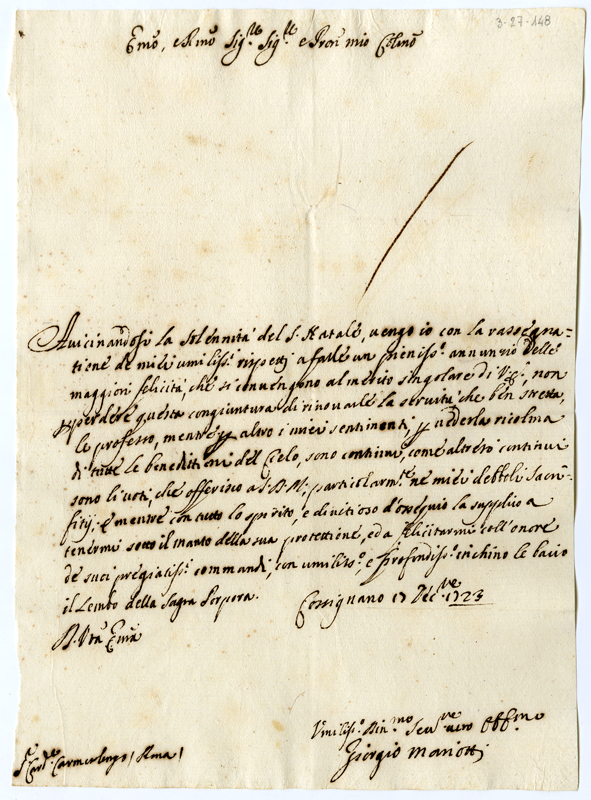 3-27-148
Emõ, e Rmõ Sigre Sigre e Pron mio Colmõ
Avicinandosi la solennità del S. Natale, vengo io con la rassegna=
tione de miei umilissi rispetti a farle un pienisso annunzio delle
maggiori felicità, che si convengono al merito singolare di V. E., non
perdere questa congiuntura di rinovarle la servitù che ben stretta,
le professo, mentre altro i miei sentimenti, vederla ricolma
di tutte le benedittioni del Cielo, sono continui, come altresì continui
sono li voti, che offerisco a S. D. M. particolarmte ne miei debboli sacri=
fitij; e mentre con tutto lo spirito, e d'ossequio la supplico a
tenermi sotto il manto della sua protettione, ed a felicitarmi coll'onore
de suoi pregiatissi commandi, con umilisso, e profondisso inchino le bacio
il Lembo della Sagra Porpora. Cossignano 17 Decbre 1723
D. Vrã Emã
Umilisso Divmo Servre vero Obbmo
Giorgio Mariotti
Sr Cardle Camerlengo / Roma /